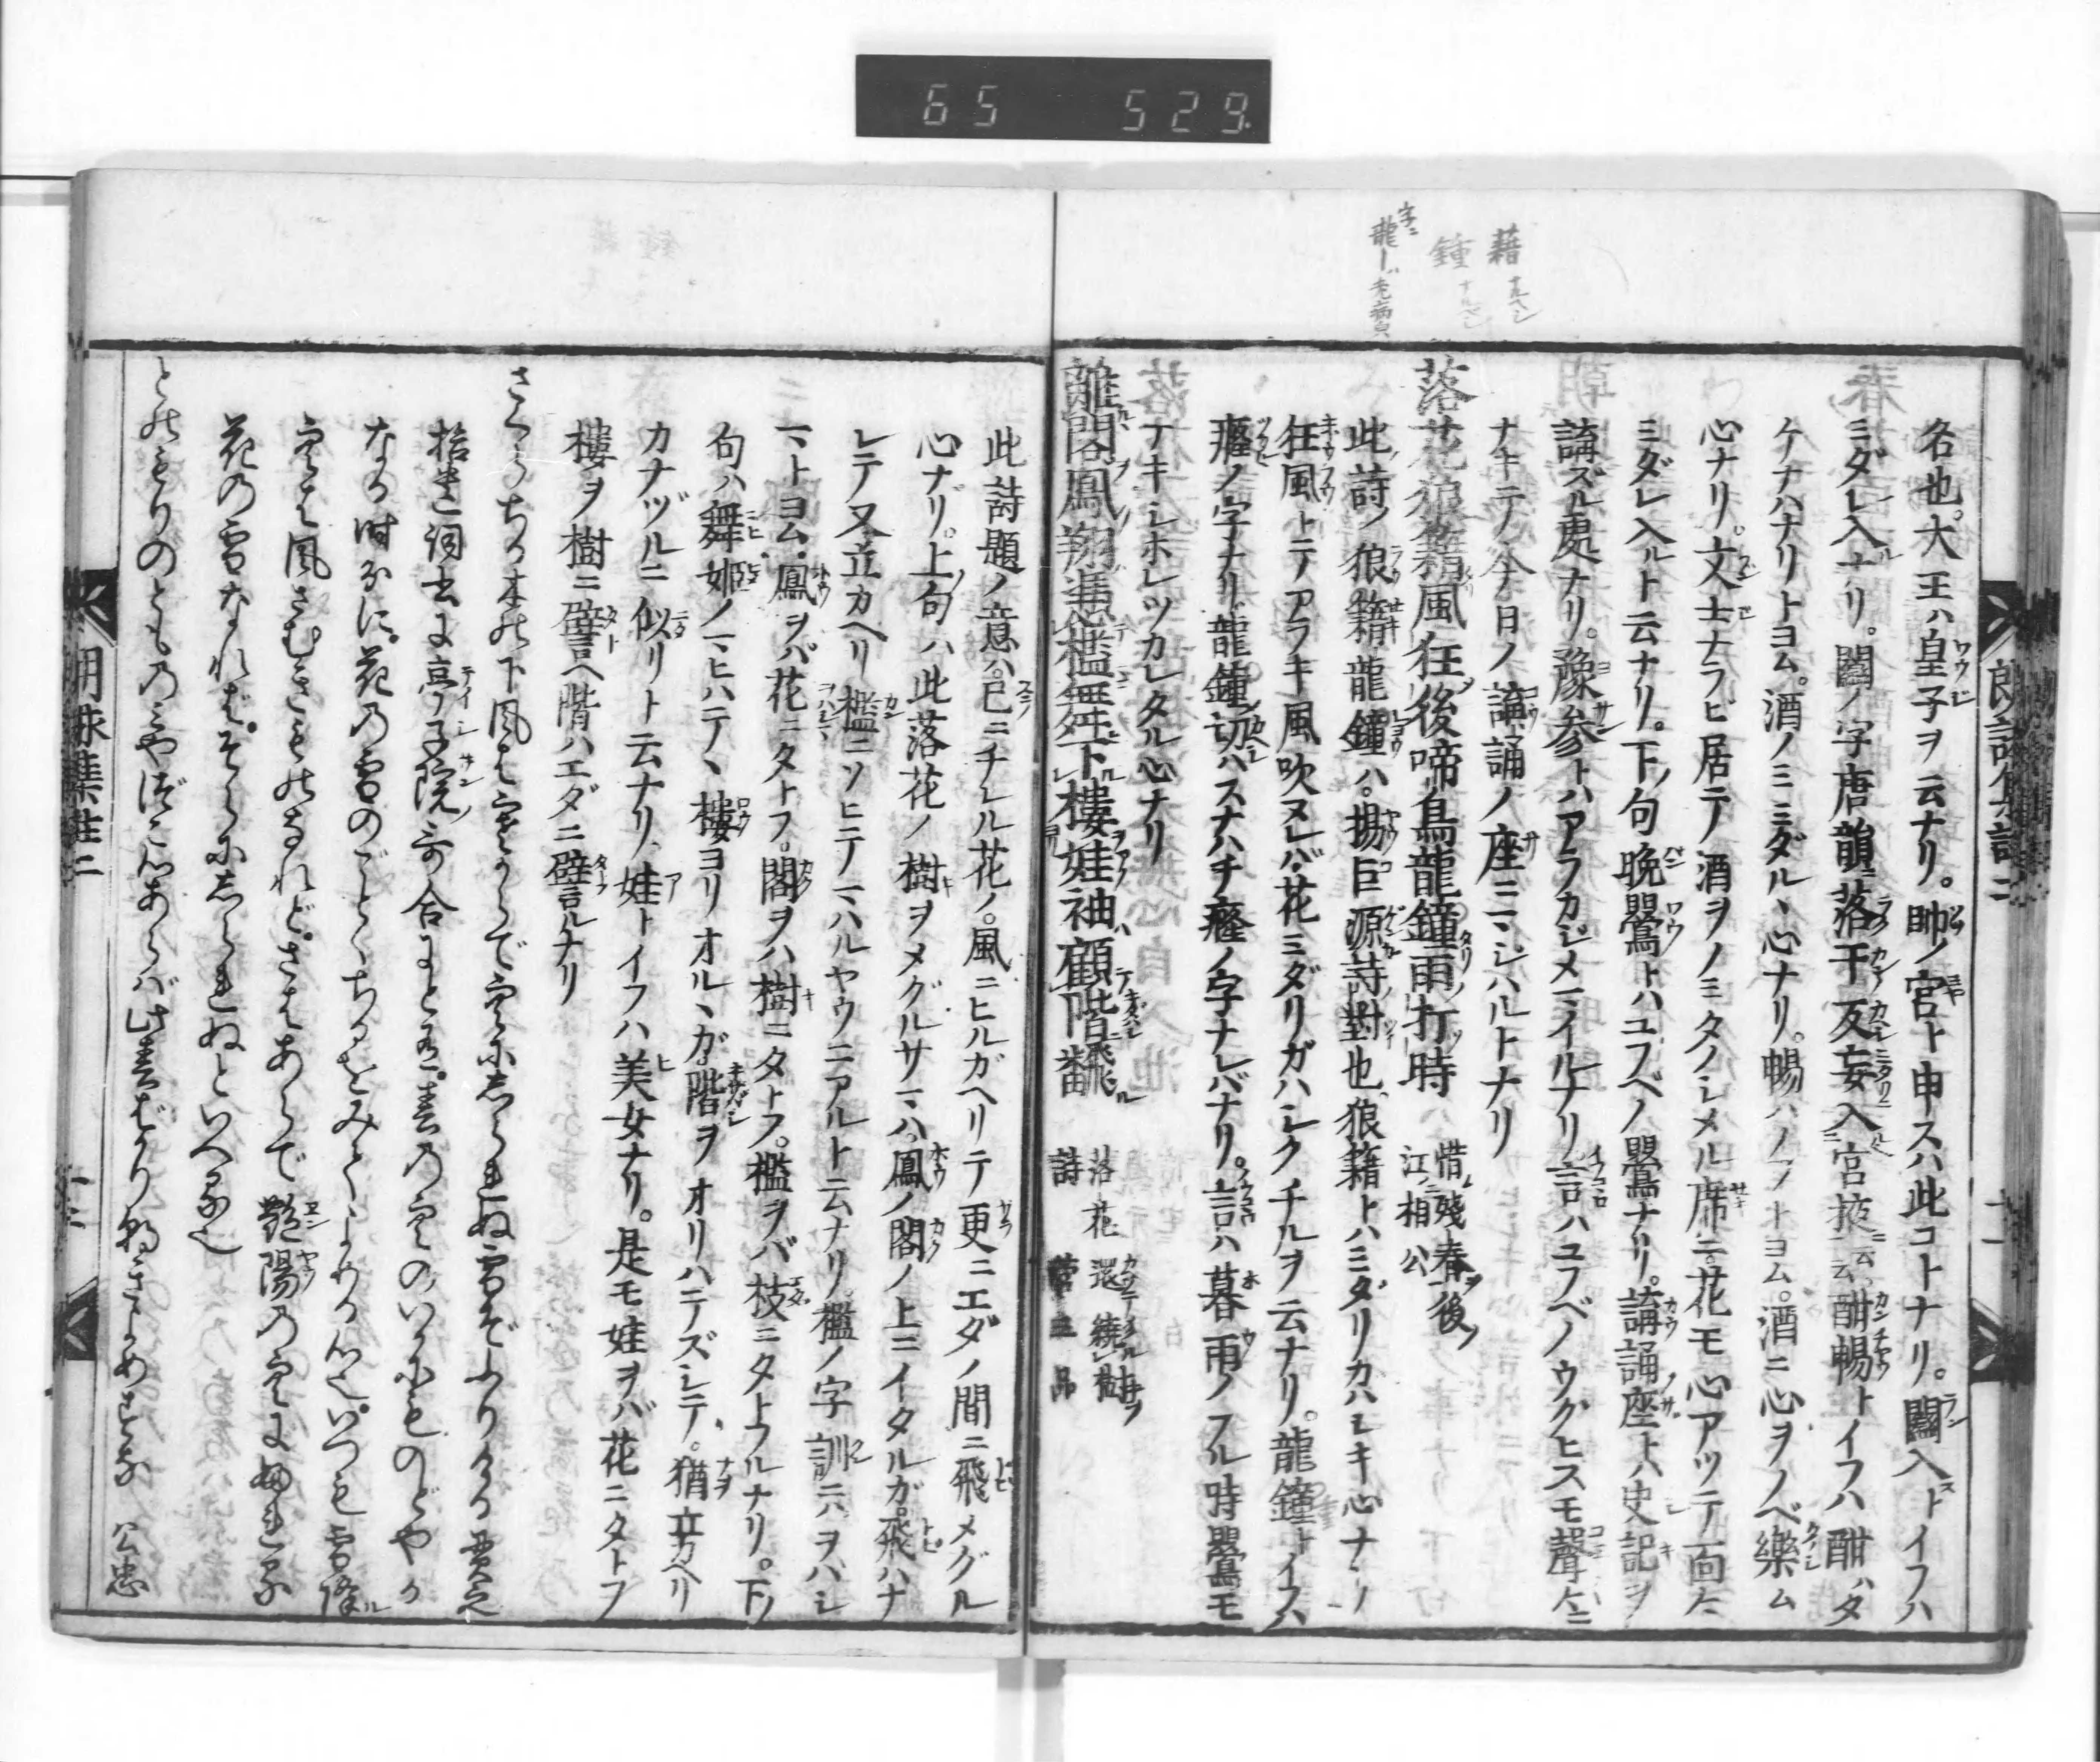 65 529
藉ナルヘシ
鍾ナルヘシ
朗詠集註二
十一
名也。大王ハ皇子ヲ云ナリ。帥ノ宮ト申スハ此コトナリ。闌入トイフハ
ミダレ入ナリ。闌ノ字唐韻ニ落干反妄入宮掖云云。酣暢トイフハ酣ハタ
ケナハナリトヨム。酒ノミミダルヽ心ナリ。暢ハノブトヨム。酒ニ心ヲノベ樂ム
心ナリ。文士ナラビ居テ酒ヲノミタノシメル席ニ。花モ心アツテ一向ニ
ミダレ入ルト云ナリ。下ノ句晩鶯トハユフベノ鶯ナリ。講誦座トハ史記ヲ
講ズル處ナリ。豫参トハアラカジメマイルナリ。言ハユフベノウグヒスモ聲〻ニ
ナキテ今日ノ講誦ノ座ニマシハルトナリ
落花狼籍風狂後啼鳥龍鐘雨打時 惜殘春後 江相公
此詩ノ狼籍龍鐘ハ。揚巨源詩對也。狼籍トハミダリカハシキ心ナリ
狂風トテアラキ風吹ヌレバ。花ミダリガハシクチルヲ云ナリ。龍鐘トイフハ
癃ノ字ナリ。龍鐘切ハスナハチ癃ノ字ナレバナリ。言ハ暮雨ノフル時鶯モ
ナキシホレツカレタル心ナリ
離閣鳳翔憑檻舞下樓娃袖顧階飜 落花還繞樹詩 菅三品
此詩題ノ意ハ。已ニチレル花ノ。風ニヒルガヘリテ更ニエダノ間ニ飛メグル
心ナリ。上ノ句ハ此落花ノ樹ヲメグルサマハ。鳳ノ閣ノ上ニイタルガ。飛ハナ
レテ又立カヘリ檻ニソヒテマハルヤウニアルト云ナリ。檻ノ字訓ニハヲハシ
マトヨム。鳳ヲバ花ニタトフ。閣ヲハ樹ニタトフ。檻ヲバ枝ニタトフルナリ。下ノ
句ハ舞姫ノマヒハテヽ樓ヨリオルヽガ。階ヲオリハテズシテ。猶立カヘリ
カナヅルニ似リト云ナリ。娃トイフハ美女ナリ。是モ娃ヲバ花ニタトフ
樓ヲ樹ニ譬ヘ階ハエダニ譬ルナリ
さくらちる木の下風はさむからで空にしられぬ雪ぞふりける 貫之
拾遺詞書に亭子院哥合にと有。春の空のいかにものどやか
なる時分に。花の雪のごとくちるをみてよめる心也。いつも雪降
空は風さむきものなれど。さはあらで艶陽の空にふれるは
花の雪なれば。そらにしられぬといへる也
とのもりのとものみやづこ心あらば此春ばかり朝きよめすな 公忠
朗詠集註二
十二